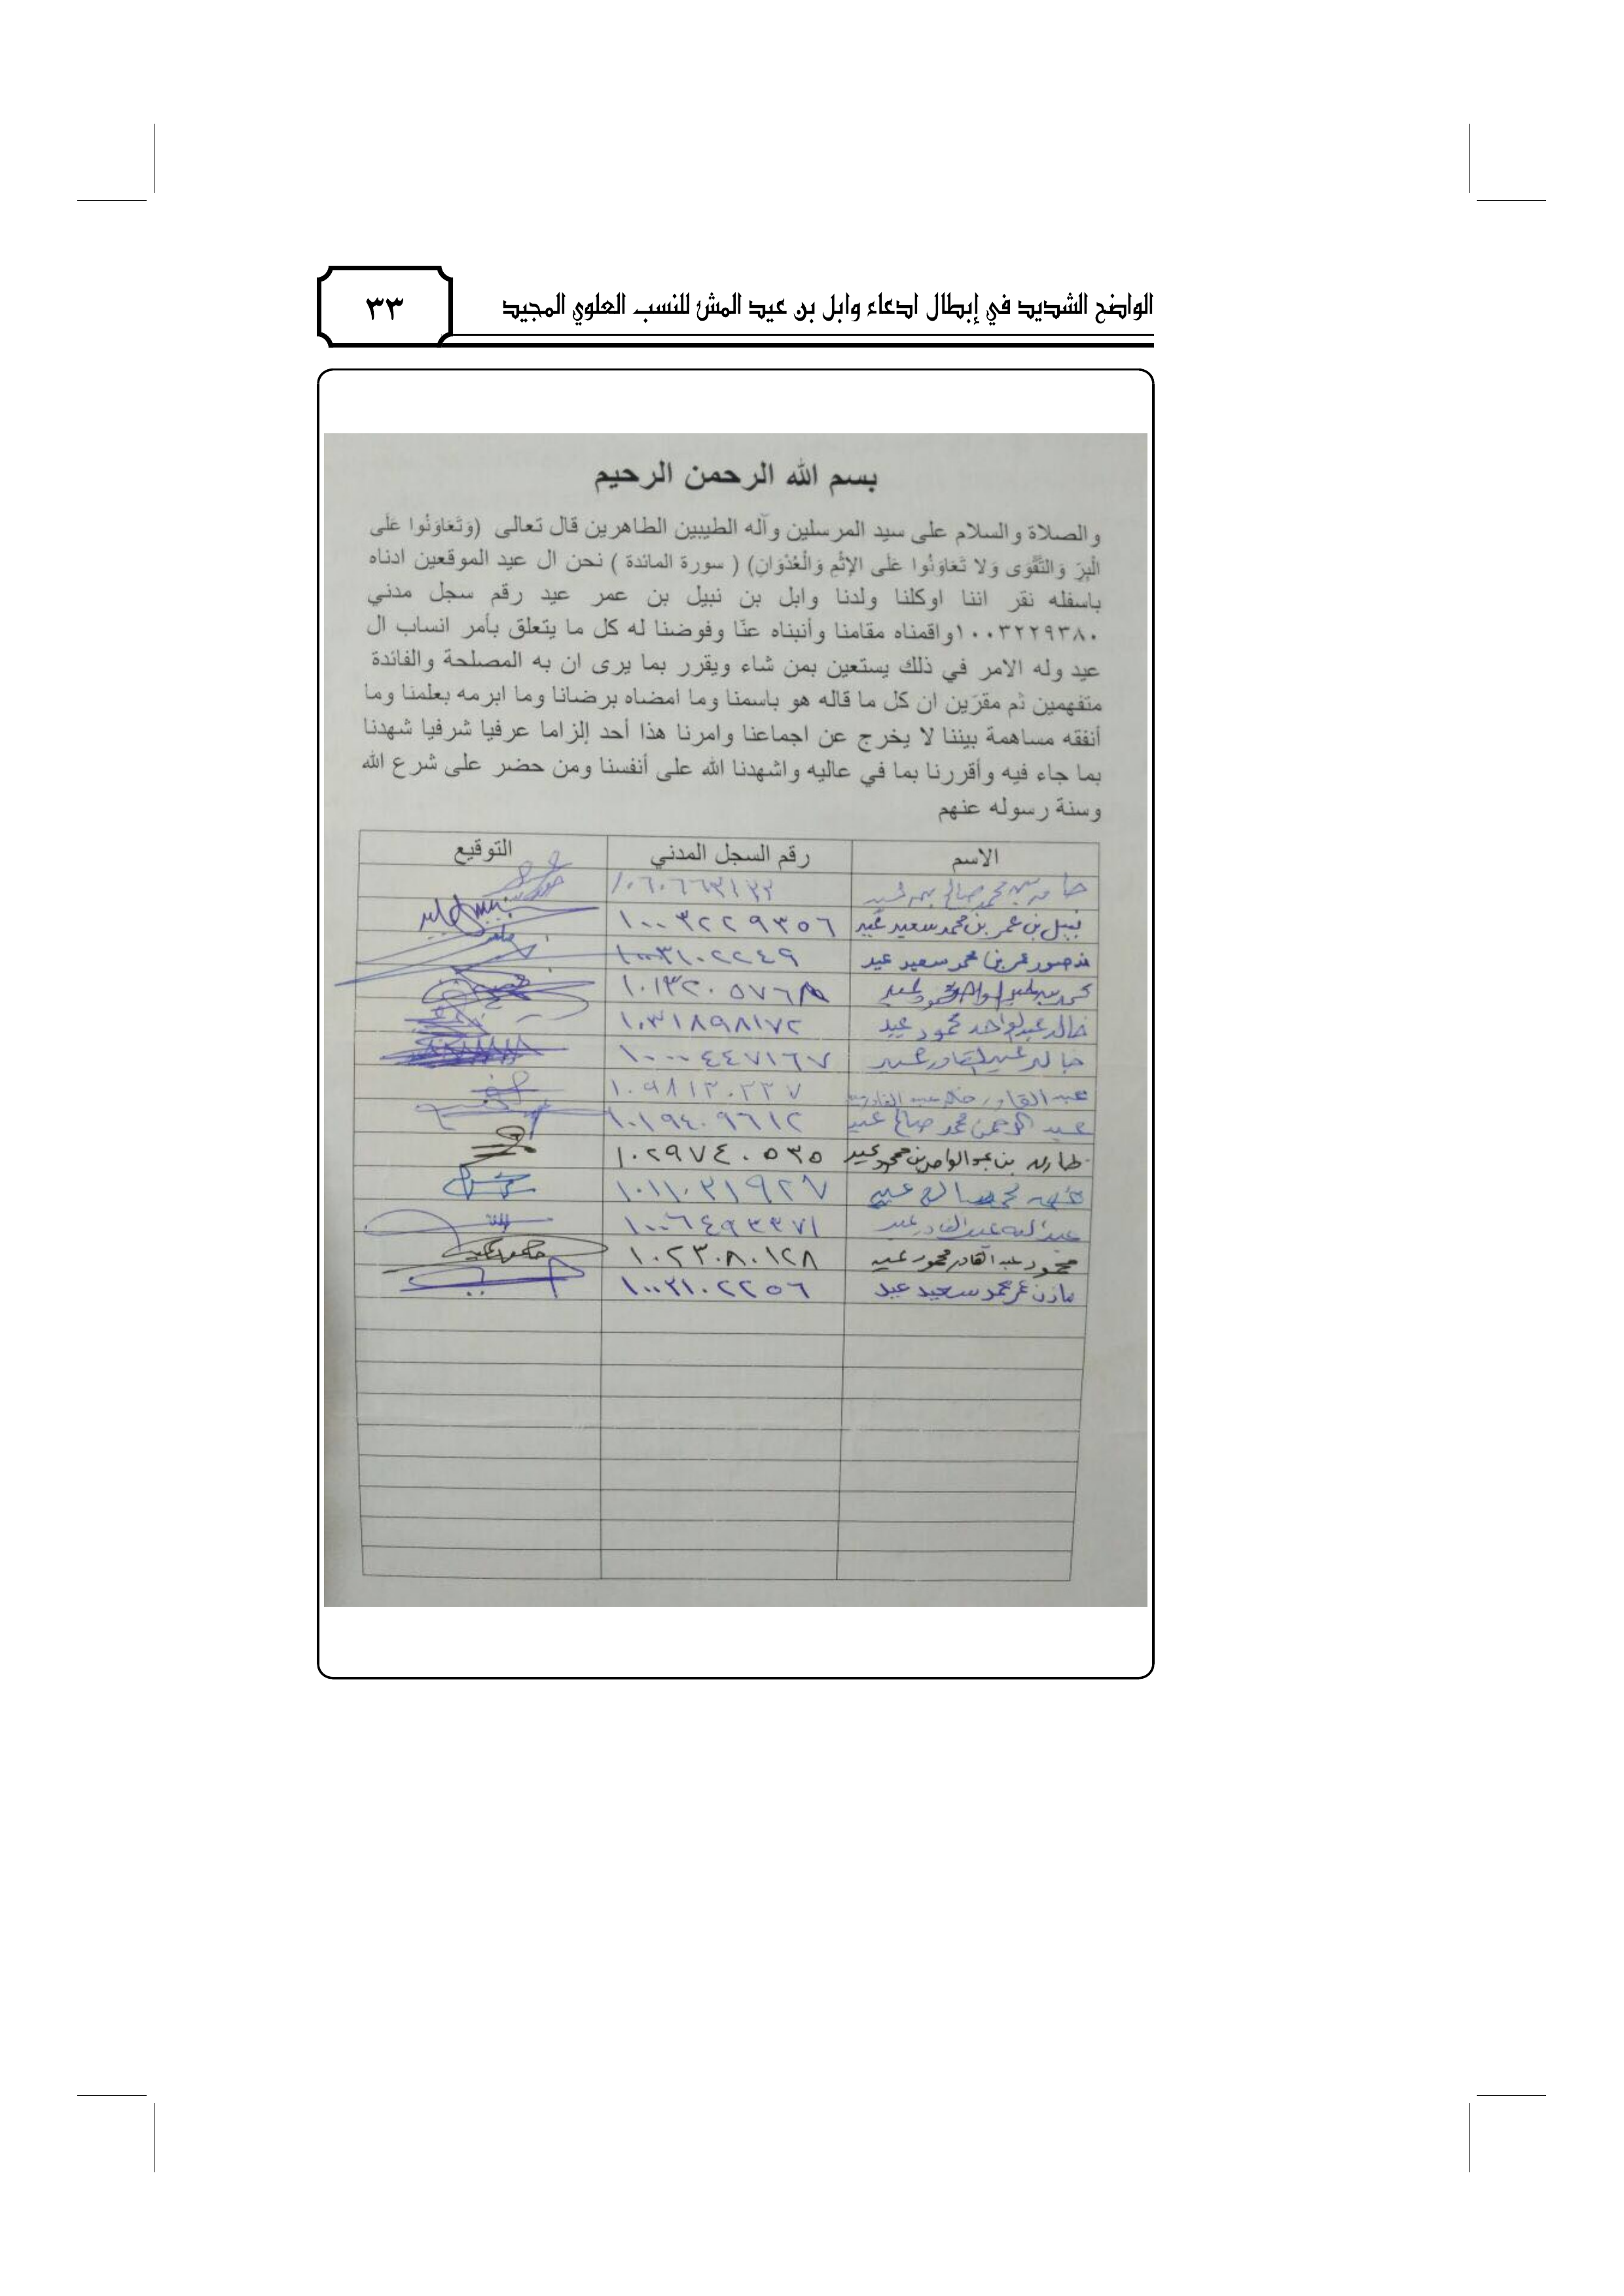 الواضح الشديد في إبطال ادعاء وابل بن عيد المش للنسب العلوي المجيد
٣٣
بسم الله الرحمن الرحيم
والصلاة والسلام على سيد المرسلين وآله الطيبين الطاهرين قال تعالى (وَتَعَاوَنُوا عَلَى
الْبِرِّ وَالتَّقْوَى وَلا تَعَاوَنُوا عَلَى الإِثْمِ وَالْعُدْوَانِ) ( سورة المائدة ) نحن ال عيد الموقعين ادناه
باسفله نقر اننا اوكلنا ولدنا وابل بن نبيل بن عمر عيد رقم سجل مدني
١٠٠٣٢٢٩٣٨٠واقمناه مقامنا وأنبناه عنّا وفوضنا له كل ما يتعلق بأمر انساب ال
عيد وله الامر في ذلك يستعين بمن شاء ويقرر بما يرى ان به المصلحة والفائدة
متفهمين ثم مقرّين ان كل ما قاله هو باسمنا وما امضاه برضانا وما ابرمه بعلمنا وما
أنفقه مساهمة بيننا لا يخرج عن اجماعنا وامرنا هذا أحد إلزاما عرفيا شرفيا شهدنا
بما جاء فيه وأقررنا بما في عاليه واشهدنا الله على أنفسنا ومن حضر على شرع الله
وسنة رسوله عنهم
الاسم رقم السجل المدني التوقيع
بن محمد صالح ١٠٦٠٦٦٣١٣٣
نبيل بن عمر بن محمد سعيد عيد ١٠٠٣٢٢٩٣٥٦
منصور عمر بن محمد سعيد عيد ١٠٠٣١٠٢٢٤٩
محمد بن عبدالواحد محمود عيد
خالد عبدالواحد محمود عيد ١٠٣١٨٩٨١٧٢
خالد عبدالقادر عيد ١٠٠٠٤٤٧١٦٧
عبدالقادر خالد عبدالقادر ١٠٩٨١٣٠٢٣٧
عبدالرحمن محمد صالح عيد ١٠١٩٤٠٩٦١٢
طارق بن عبدالواحد بن محمود عيد ١٠٢٩٧٤٠٥٣٥
محمد صالح عيد ١٠١١٠٣١٩٢٧
عبدالله عبدالقادر عيد ١٠٠٦٤٩٣٣٧١
محمود عبدالقادر محمود عيد ١٠٢٣٠٨٠١٢٨
مازن عمر محمد سعيد عيد ١٠٠٣١٠٢٢٥٦